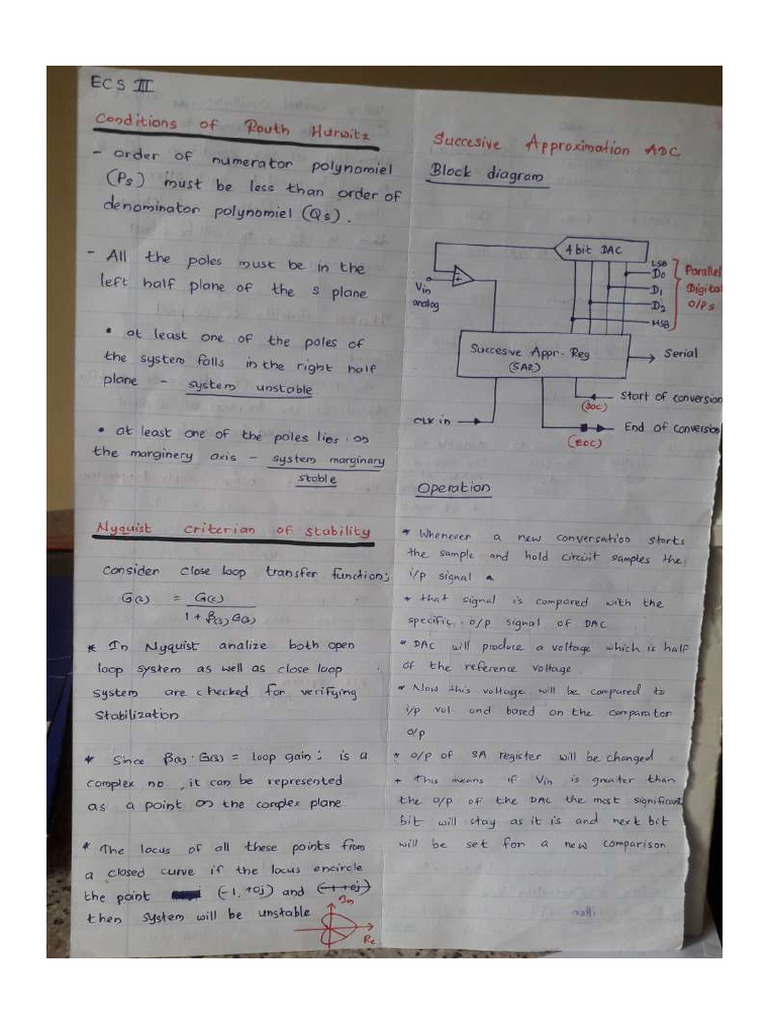 ECS II
Conditions of Routh Hurwitz
- order of numerator polynomiel
(Ps) must be less than order of
denominator polynomiel (Qs).
- All the poles must be in the
left half plane of the s plane
• at least one of the poles of
the system falls in the right half
plane - system unstable
• at least one of the poles lies on
the marginery axis - system marginary
stable
Nyquist criterian of stability
consider close loop transfer function;
G(s) = G(s)
1 + β(s) G(s)
* In Nyquist analize both open
loop system as well as close loop
system are checked for verifying
stabilization
* Since β(s) · G(s) = loop gain; is a
complex no, it can be represented
as a point on the complex plane
* The locus of all these points from
a closed curve if the locus encircle
the point (-1, +0j) and (-1+0j)
then system will be unstable
Im
Re
Succesive Approximation ADC
Block diagram
4 bit DAC
LSB
D0
D1
D2
MSB
Parallel
Digital
O/Ps
Vin
analog
Succesve Appr. Reg
(SAR)
Serial
Start of conversion
(SOC)
CLK in
End of conversion
(EOC)
Operation
* Whenever a new conversation starts
the sample and hold circuit samples the
i/p signal
* that signal is compared with the
specific o/p signal of DAC
* DAC will produce a voltage which is half
of the reference voltage
* Now this voltage will be compared to
i/p vol. and based on the comparator
o/p
* o/p of SA register will be changed
* This means if Vin is greater than
the o/p of the DAC the most significant
bit will stay as it is and next bit
will be set for a new comparison